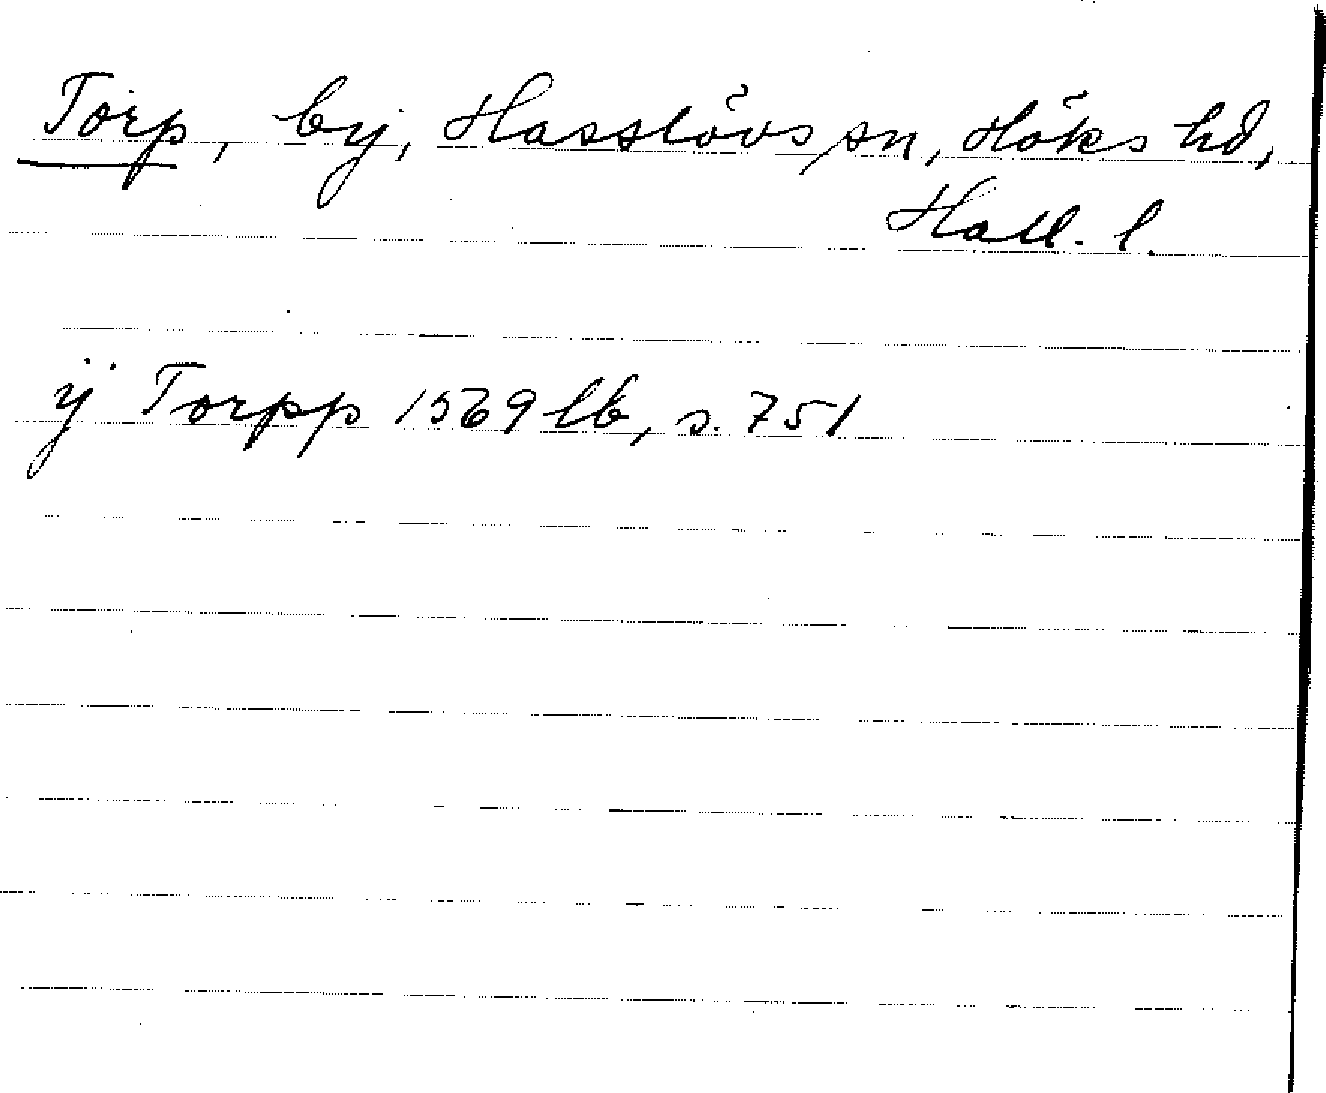 Torp, by, Hasslövs sn, Höks hd,
Hall. l.
ij Torpp 1569 lb, s. 751